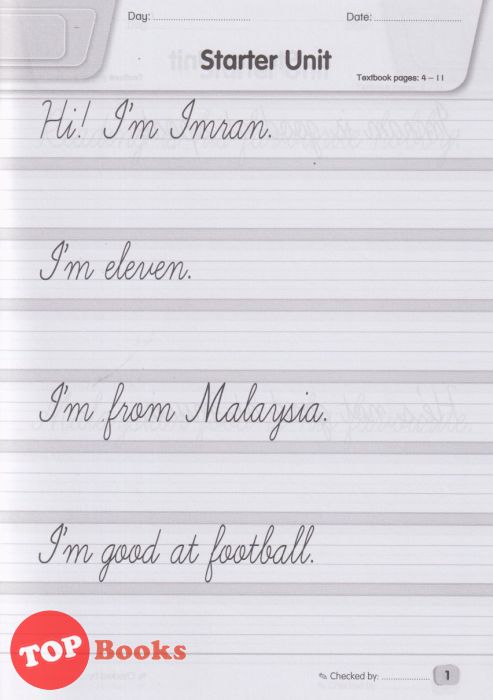 Day:............................ Date:............................
Starter Unit
Textbook pages: 4 – 11
Hi! I'm Imran.
I'm eleven.
I'm from Malaysia.
I'm good at football.
TOP Books
Checked by: .................... 1